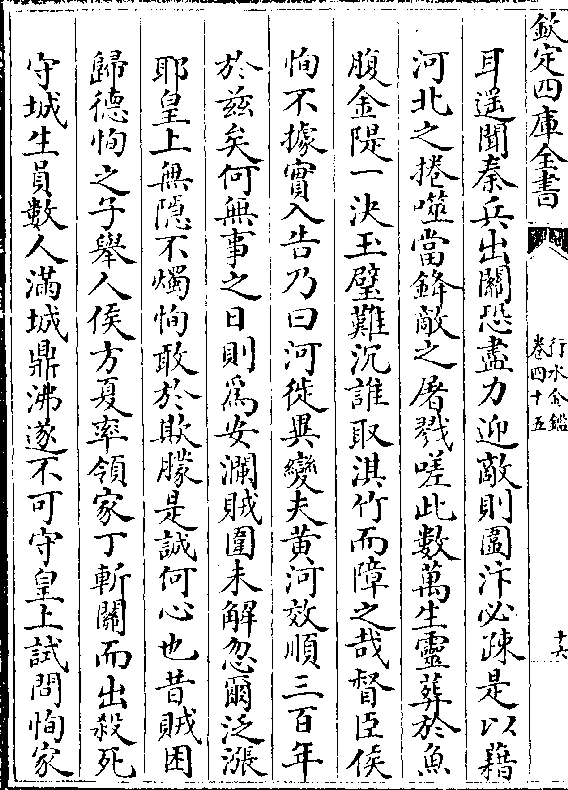 欽定四庫全書
行水金鑑
卷四十五
十六
耳遥聞秦兵出關恐盡力迎敵則圖汴必疎是以藉
河北之捲噬當鋒敵之屠戮嗟此數萬生靈葬於魚
腹金隄一決玉璧難沉誰取淇竹而障之哉督臣侯
恂不據實入告乃曰河徙異變夫黄河效順三百年
於兹矣何無事之日則為安瀾賊圍未解忽爾泛漲
耶皇上無隱不燭恂敢於欺朦是誠何心也昔賊困
歸德恂之子舉人侯方夏率領家丁斬關而出殺死
守城生員數人滿城鼎沸遂不可守皇上試問恂家